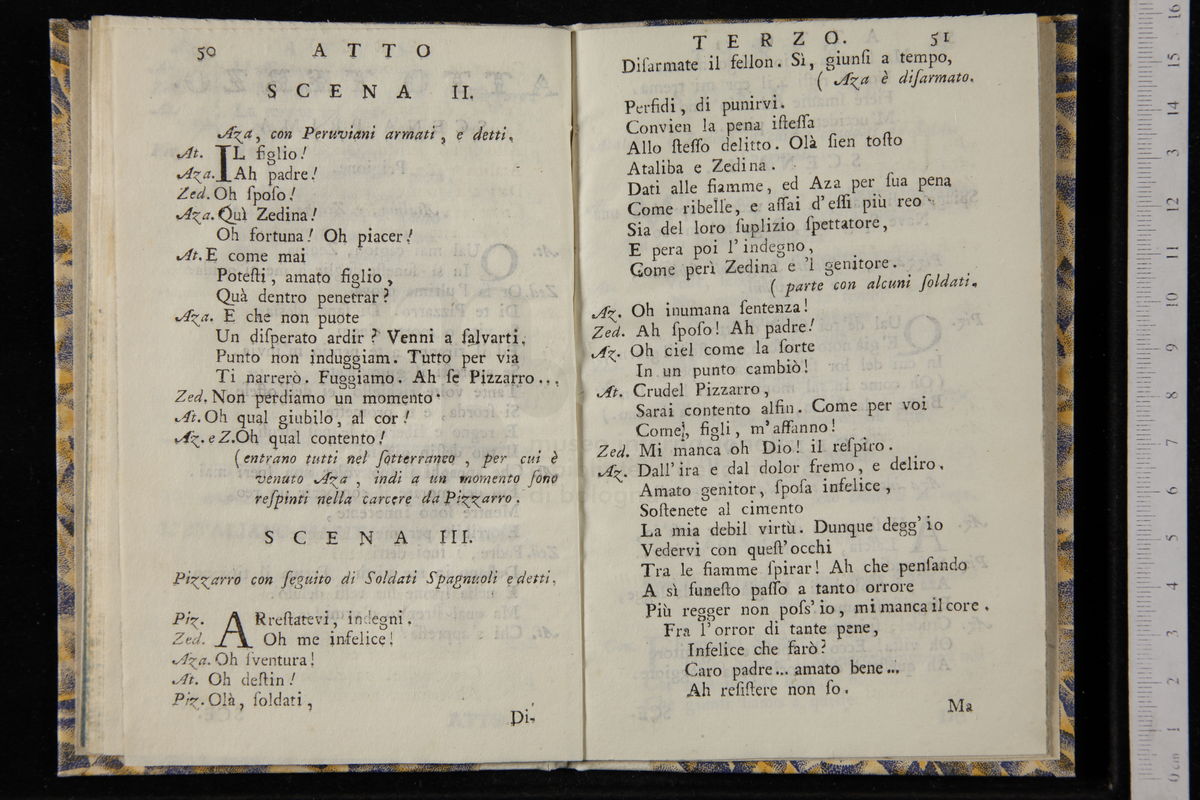 50 ATTO
SCENA II.
Aza, con Peruviani armati, e detti.
At. IL figlio!
Aza. Ah padre!
Zed. Oh ſpoſo!
Aza. Quì Zedina!
Oh fortuna! Oh piacer!
At. E come mai
Poteſti, amato figlio,
Quà dentro penetrar?
Aza. E che non puote
Un diſperato ardir? Venni a ſalvarti.
Punto non induggiam. Tutto per via
Ti narrerò. Fuggiamo. Ah ſe Pizzarro...
Zed. Non perdiamo un momento.
At. Oh qual giubilo, al cor!
Az. e Z. Oh qual contento!
(entrano tutti nel ſotterraneo, per cui è
venuto Aza, indi a un momento ſono
reſpinti nella carcere da Pizzarro.
SCENA III.
Pizzarro con ſeguito di Soldati Spagnuoli e detti.
Piz. ARreſtatevi, indegni.
Zed. Oh me infelice!
Aza. Oh ſventura!
At. Oh deſtin!
Piz. Olà, ſoldati,
Di-
TERZO. 51
Diſarmate il fellon. Sì, giunſi a tempo,
(Aza è diſarmato.
Perfidi, di punirvi.
Convien la pena iſteſſa
Allo ſteſſo delitto. Olà ſien toſto
Ataliba e Zedina.
Dati alle fiamme, ed Aza per ſua pena
Come ribelle, e aſſai d'eſſi più reo
Sia del loro ſuplizio ſpettatore,
E pera poi l'indegno,
Come perì Zedina e 'l genitore.
(parte con alcuni ſoldati.
Az. Oh inumana ſentenza!
Zed. Ah ſpoſo! Ah padre!
Az. Oh ciel come la ſorte
In un punto cambiò!
At. Crudel Pizzarro,
Sarai contento alfin. Come per voi
Come, figli, m'affanno!
Zed. Mi manca oh Dio! il reſpiro.
Az. Dall'ira e dal dolor fremo, e deliro.
Amato genitor, ſpoſa infelice,
Soſtenete al cimento
La mia debil virtù. Dunque degg'io
Vedervi con queſt'occhi
Tra le fiamme ſpirar! Ah che penſando
A sì funeſto paſſo a tanto orrore
Più regger non poſs'io, mi manca il core.
Fra l'orror di tante pene,
Infelice che farò?
Caro padre... amato bene...
Ah reſiſtere non ſo.
Ma